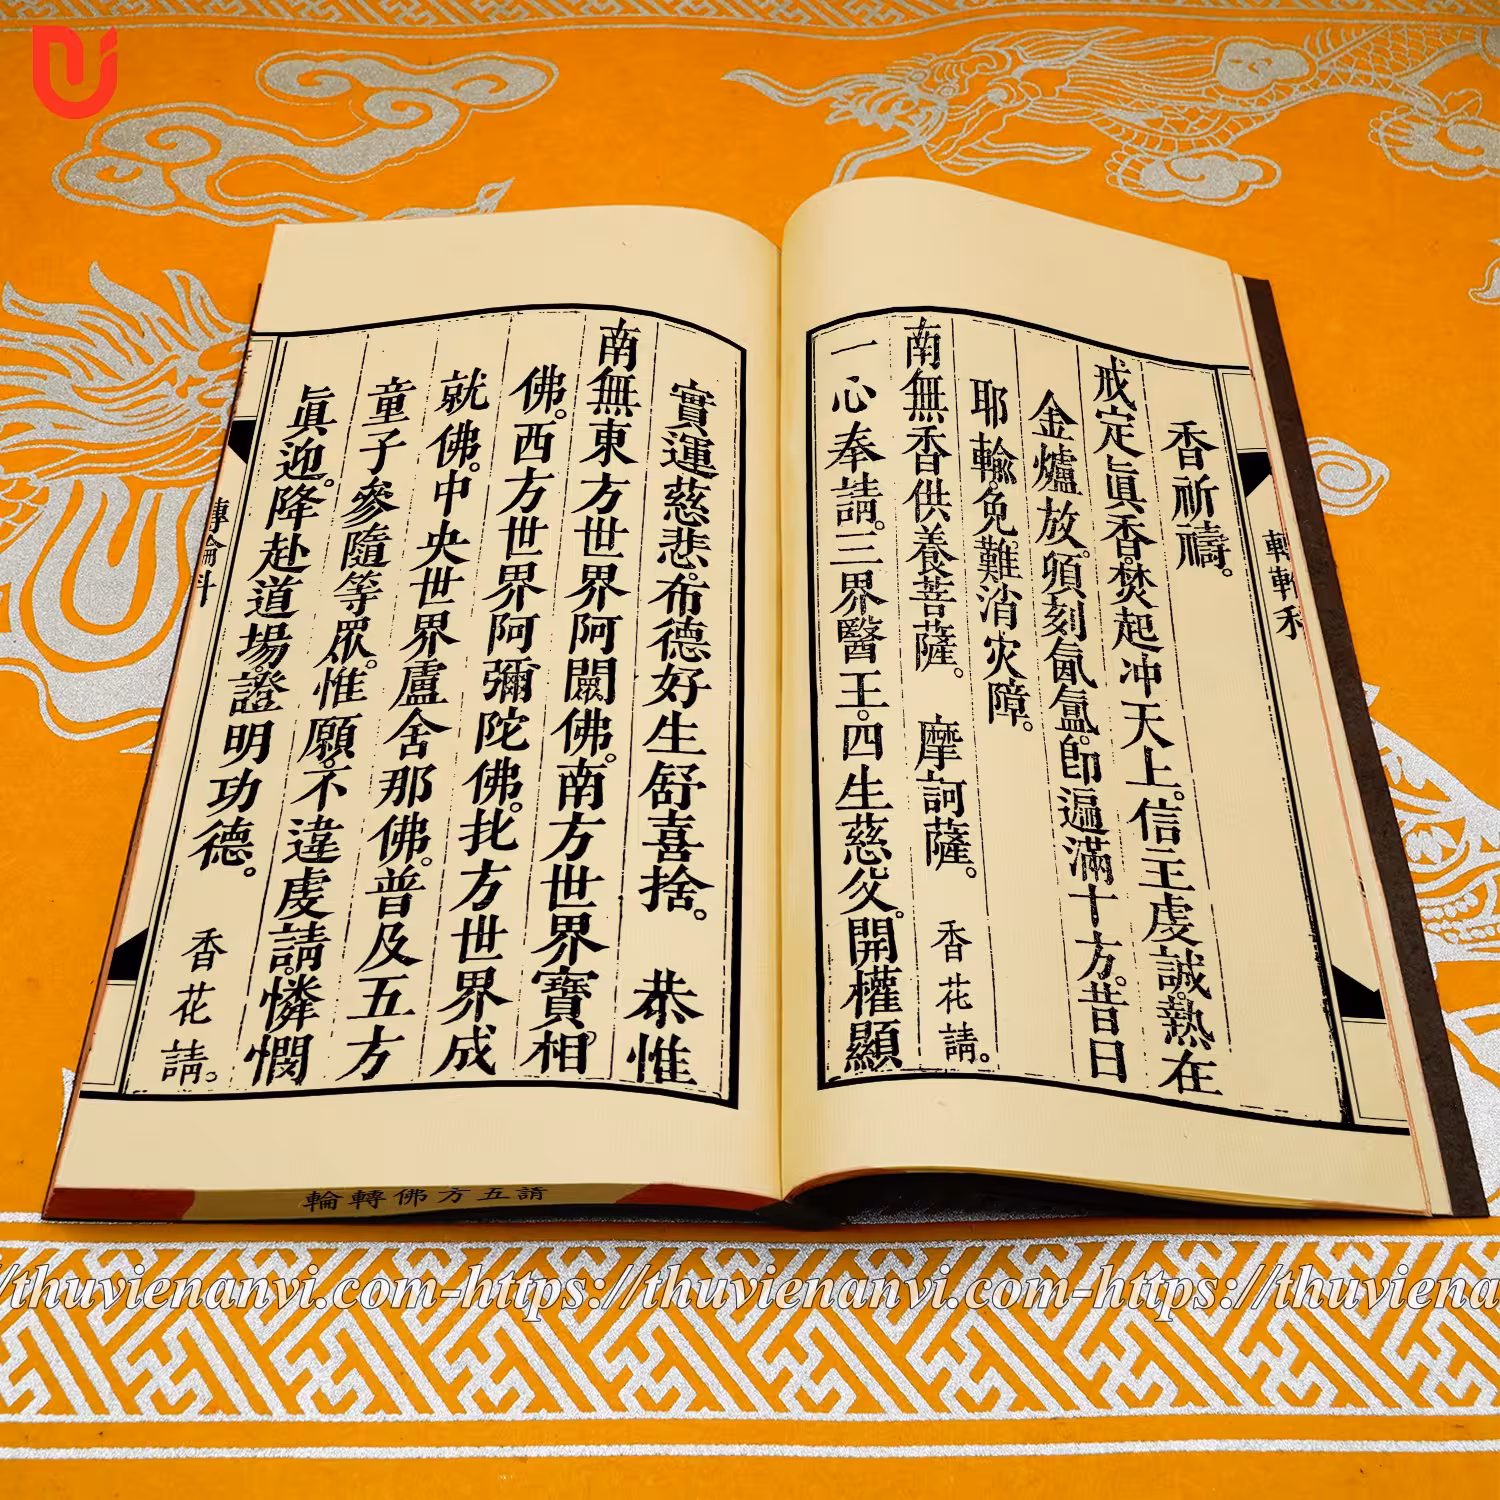 香祈禱。
戒定眞香。焚起冲天上。信主虔誠。熱在
金爐放。頃刻氤氳。卽遍滿十方。昔日
耶輸。免難消灾障。
南無香供養菩薩。 摩訶薩。 香花請。
一心奉請。三界醫王。四生慈父。開權顯
實。運慈悲。布德好生。舒喜捨。 恭惟
南無東方世界阿閦佛。南方世界寶相
佛。西方世界阿彌陀佛。北方世界成
就佛。中央世界盧舍那佛。普及五方
童子參隨等眾。惟願。不違虔請。憐憫
眞迎。降赴道場。證明功德。 香花請。
轉輪科
輪轉佛方五請
//thuvienanvi.com-https://thuvienanvi.com-https://thuviena